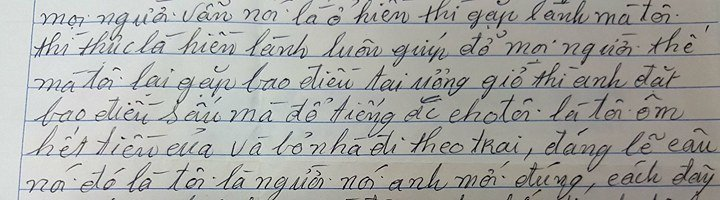 mọi người vẫn nói là ở hiền thì gặp lành mà tôi
thì thực là hiền lành luôn giúp đỡ mọi người thế
mà tôi lại gặp bao điều tai ương giờ thì anh đặt
bao điều xấu mà đổ tiếng ác cho tôi là tôi ôm
hết tiền của và bỏ nhà đi theo trai, đáng lẽ câu
nói đó là tôi là người nói anh mới đúng, cách đây